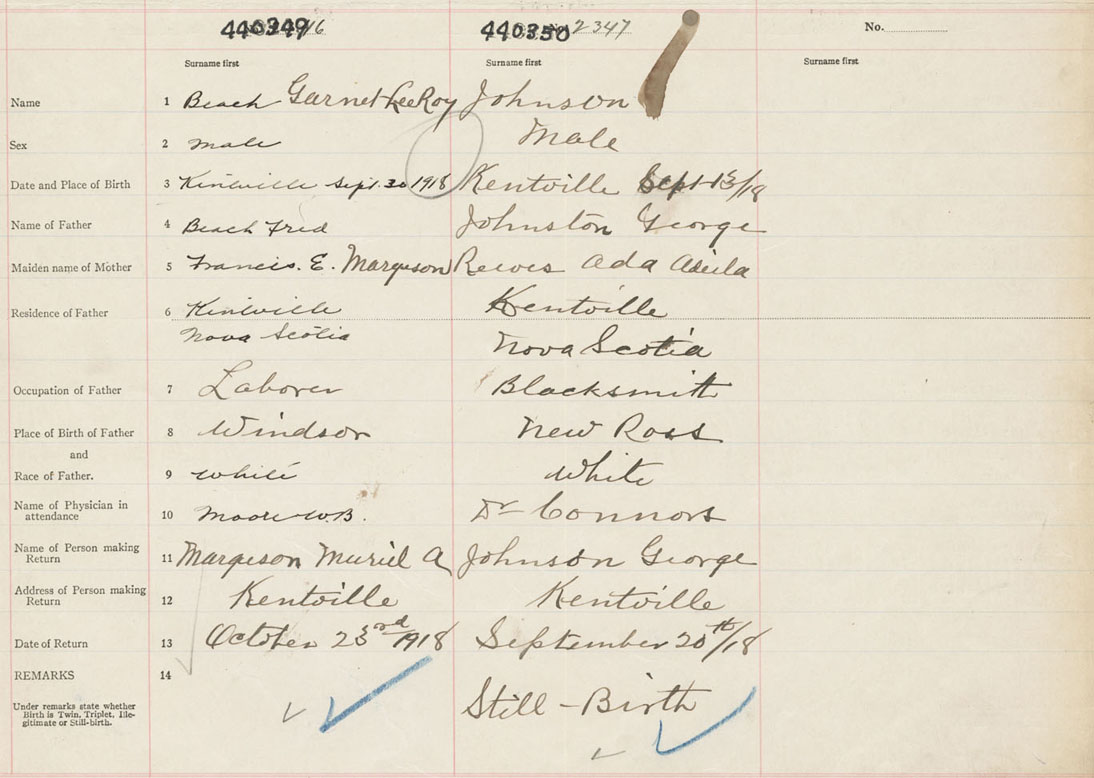 440349 16 440350 2347 No.
Surname first Surname first Surname first
Name 1 Beach Garnet LeeRoy Johnson
Sex 2 Male Male
Date and Place of Birth 3 Kentville Sept. 30 1918 Kentville Sept 13/18
Name of Father 4 Beach Fred Johnston George
Maiden name of Mother 5 Francis. E. Margeson Reeves Ada
Residence of Father 6 Kentville Kentville
Nova Scotia Nova Scotia
Occupation of Father 7 Laborer Blacksmith
Place of Birth of Father 8 Windsor New Ross
and
Race of Father. 9 White White
Name of Physician in
attendance 10 Moore W.B. Dr Connors
Name of Person making
Return 11 Margeson Muriel A Johnson George
Address of Person making
Return 12 Kentville Kentville
Date of Return 13 October 23rd 1918 September 20th/18
REMARKS 14
Under remarks state whether
Birth is Twin, Triplet, Ille-
gitimate or Still-birth.
Still-Birth